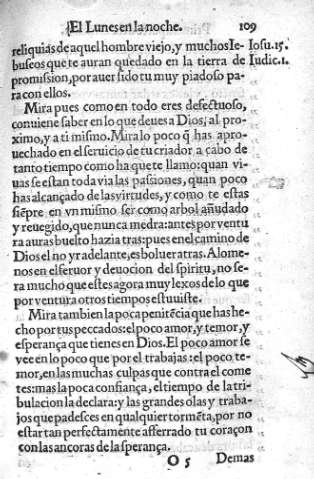 El Lunes en la noche. 109
reliquias de aquel hombre viejo, y muchos Ie- Iosu.15.
buseos que te auran quedado en la tierra de Iudic.1.
promission, por auer sido tu muy piadoso pa-
ra con ellos.
Mira pues como en todo eres defectuoso,
conuiene saber en lo que deues a Dios, al pro-
ximo, y a ti mismo. Mira lo poco q̃ has apro-
uechado en el seruicio de tu criador a cabo de
tanto tiempo como ha que te llamo: quan vi-
uas se estan toda via las passiones, quan poco
has alcançado de las virtudes, y como te estas
siẽpre en vn mismo ser como arbol añudado
y reuegido, que nunca medra: antes por ventu
ra auras buelto hazia tras: pues en el camino de
Dios el no yr adelante, es boluer atras. Alome-
nos en el feruor y deuocion del spiritu, no se-
ra mucho que estes agora muy lexos de lo que
por ventura otros tiempos estuuiste.
Mira tambien la poca penitẽcia que has he-
cho por tus peccados: el poco amor, y temor, y
esperança que tienes en Dios. El poco amor se
vee en lo poco que por el trabajas: el poco te-
mor, en las muchas culpas que contra el come
tes: mas la poca confiança, el tiempo de la tri-
bulacion la declara: y las grandes olas y traba-
jos que padesces en qualquier tormẽta, por no
estar tan perfectamente afferrado tu coraçon
con las ancoras de la sperança.
O 5 Demas